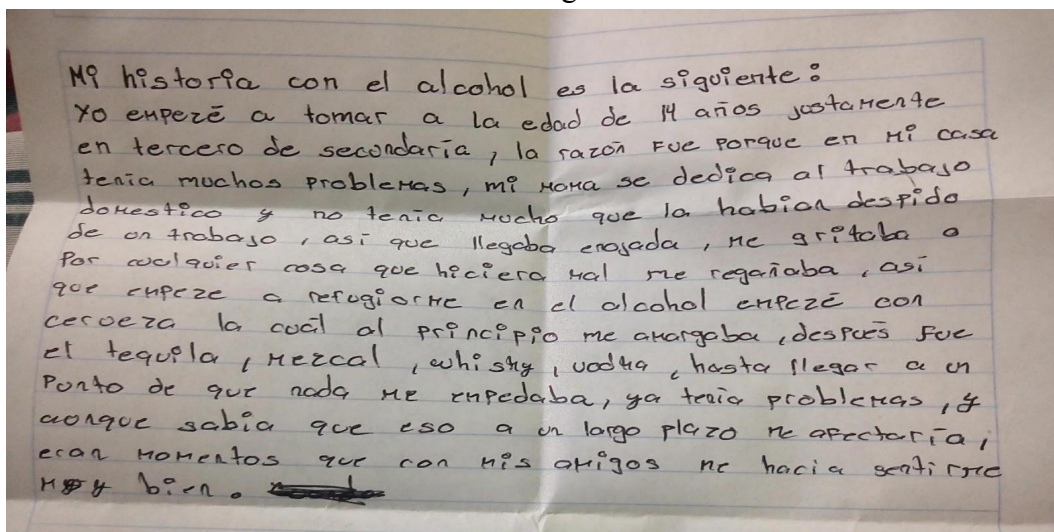 Mi historia con el alcohol es la siguiente:
Yo empezé a tomar a la edad de 14 años justamente
en tercero de secondaría, la razón Fue porque en mi casa
tenia muchos problemas, mi mama se dedica al trabajo
domestico y no tenia mucho que la habian despido
de un trabajo, así que llegaba enojada, me gritaba o
Por cualquier cosa que hiciera mal me regañaba, así
que empeze a refugiarme en el alcohol empezé con
cerveza la cuál al principio me amargaba, después fue
el tequila, mezcal, whisky, vodka, hasta llegar a un
Punto de que nada me empedaba, ya tenia problemas, y
aunque sabia que eso a un largo plazo me afectaría,
eran momentos que con mis amigos me hacia sentirme
muy bien.